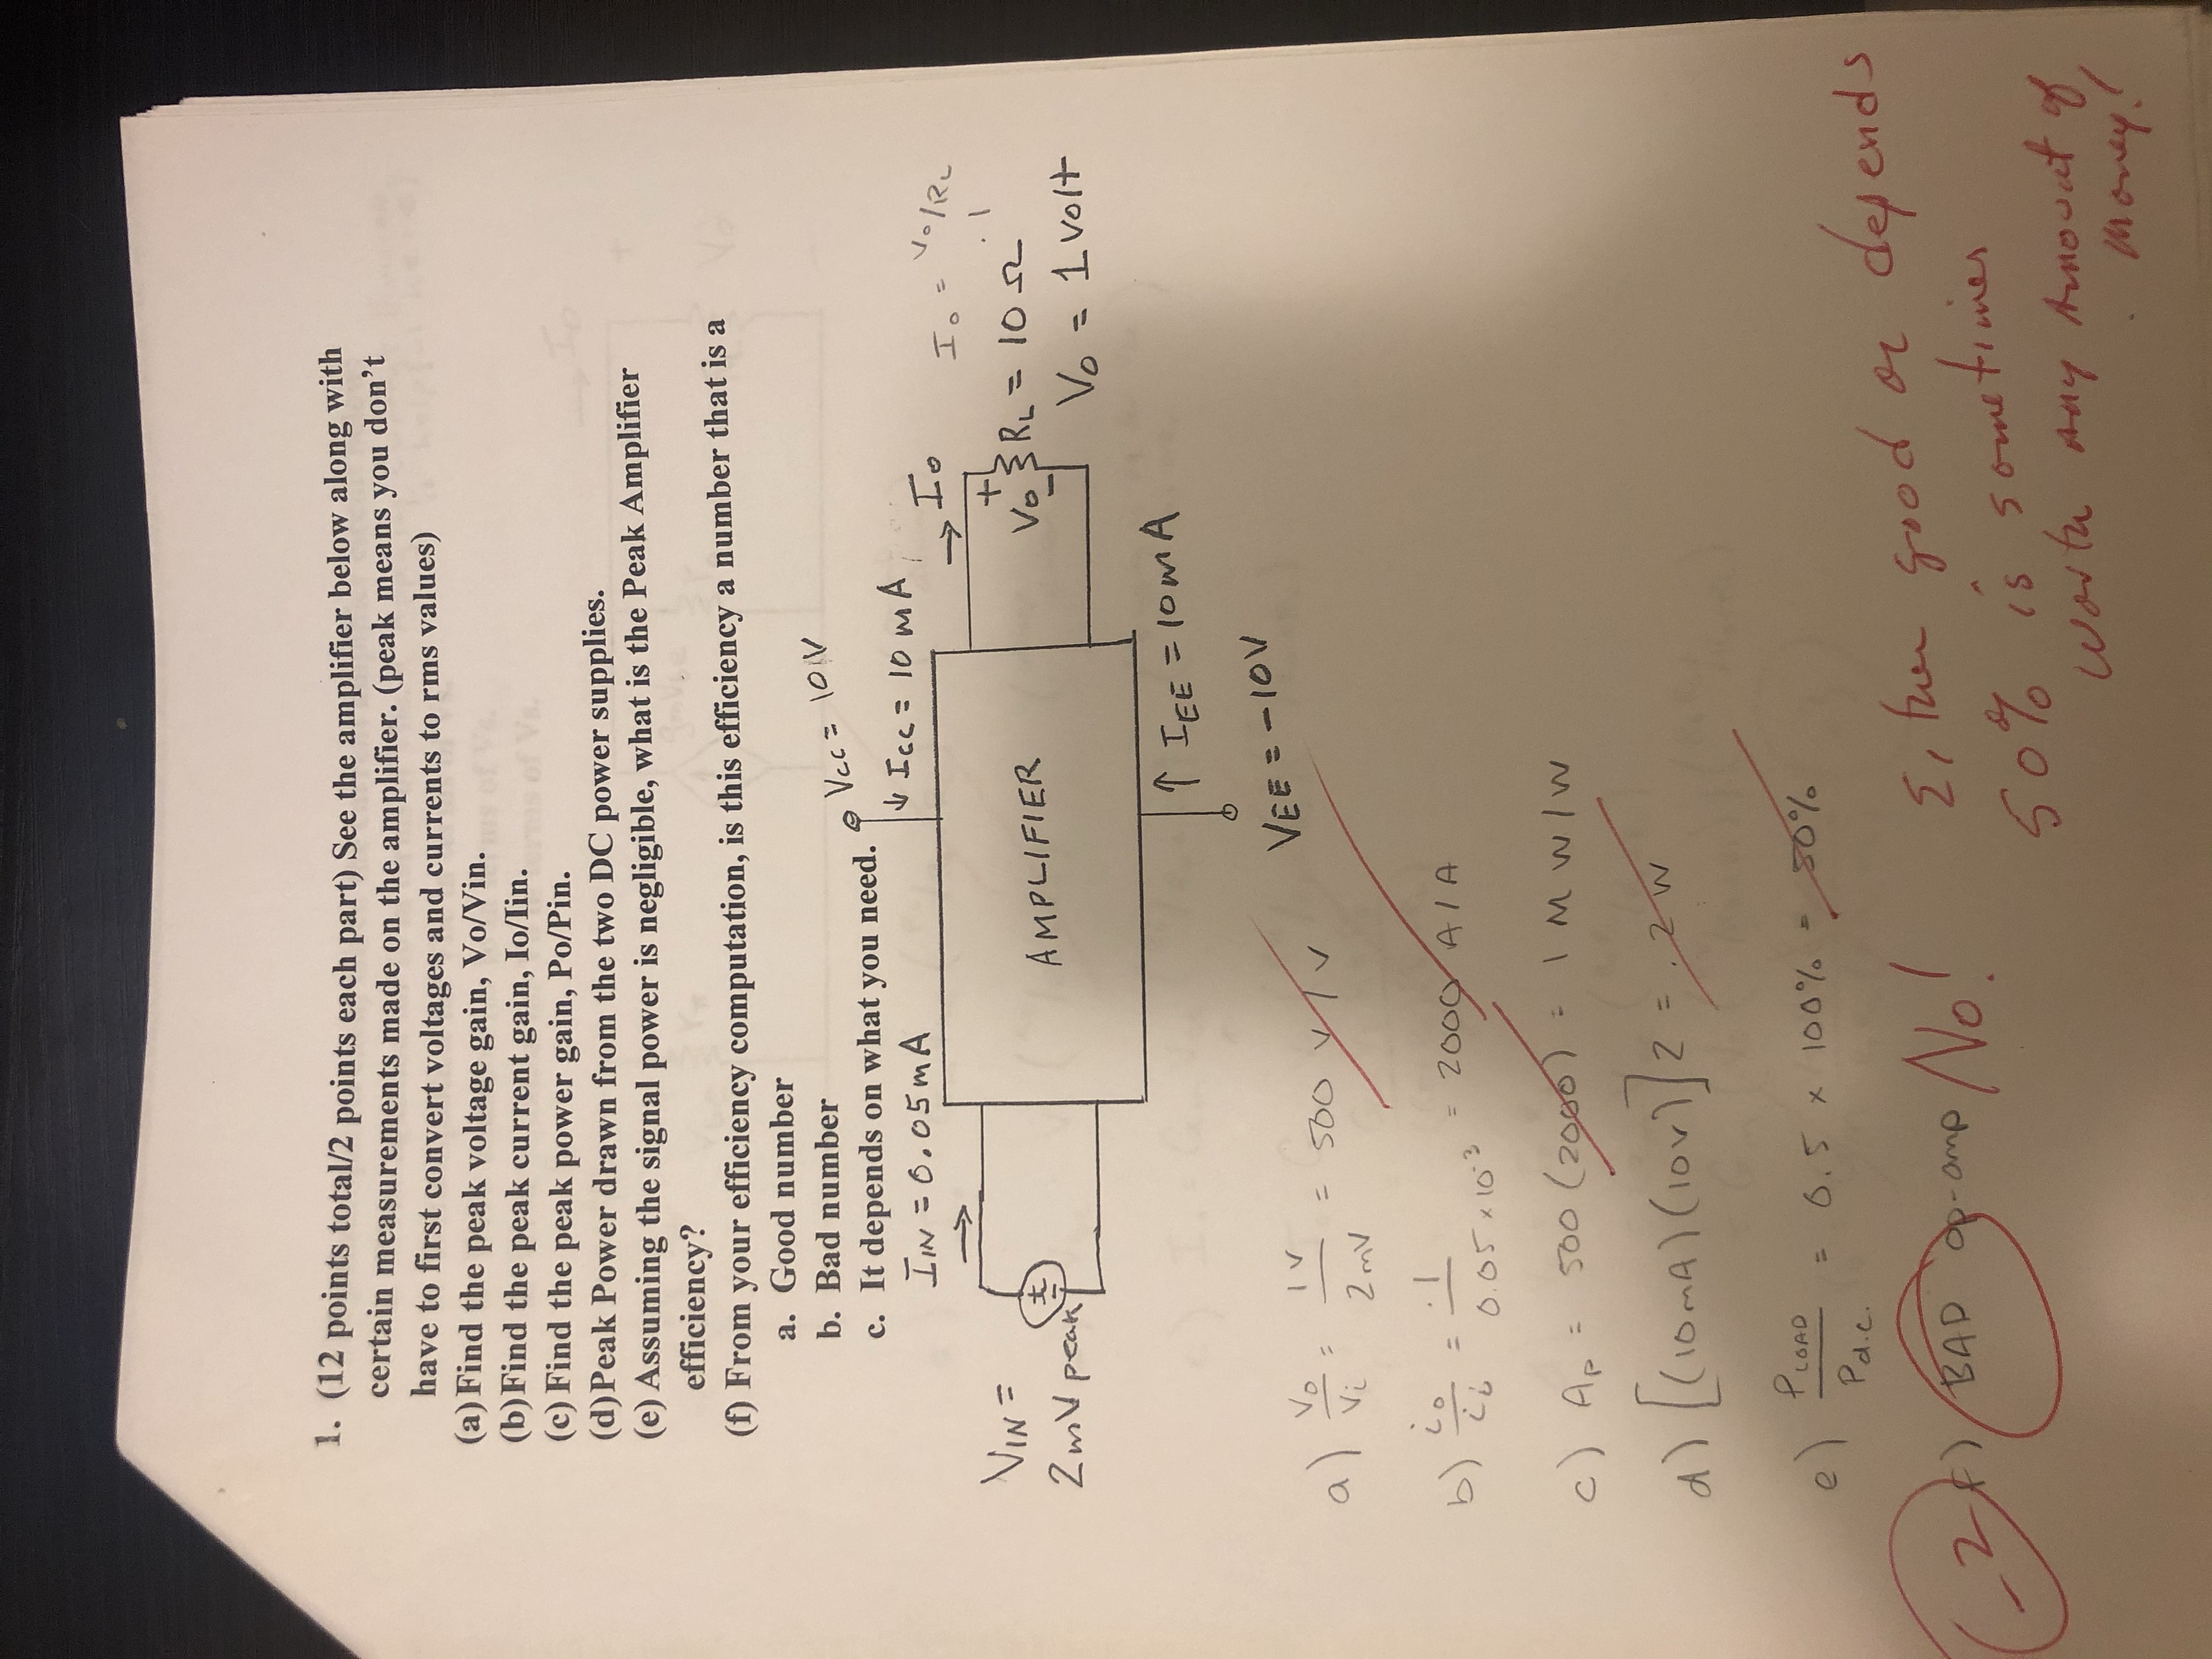 1. (12 points total/2 points each part) See the amplifier below along with
certain measurements made on the amplifier. (peak means you don't
have to first convert voltages and currents to rms values)
(a) Find the peak voltage gain, Vo/Vin.
(b) Find the peak current gain, Io/Iin.
(c) Find the peak power gain, Po/Pin.
(d) Peak Power drawn from the two DC power supplies.
(e) Assuming the signal power is negligible, what is the Peak Amplifier
efficiency?
(f) From your efficiency computation, is this efficiency a number that is a
a. Good number
b. Bad number
c. It depends on what you need.
Vcc = 10V
Icc = 10 mA
IIN = 0.05mA
Io
Io = Vo/RL
.1
VIN =
2mV peak
+
-
AMPLIFIER
+
Vo
-
RL = 10 Ω
Vo = 1 volt
IEE = 10mA
VEE = -10V
a) Vo/Vi = 1V/2mV = 500 V/V
b) io/ii = .1/0.05 x 10^-3 = 2000 A/A
c) Ap = 500 (2000) = 1 M W/W
d) [(10mA)(10V)]2 = .2 W
e) PLOAD/Pd.c. = 0.5 x 100% = 50%
-2 f) BAD op-amp No!
Either good or depends
50% is sometimes
worth any amount of
money!